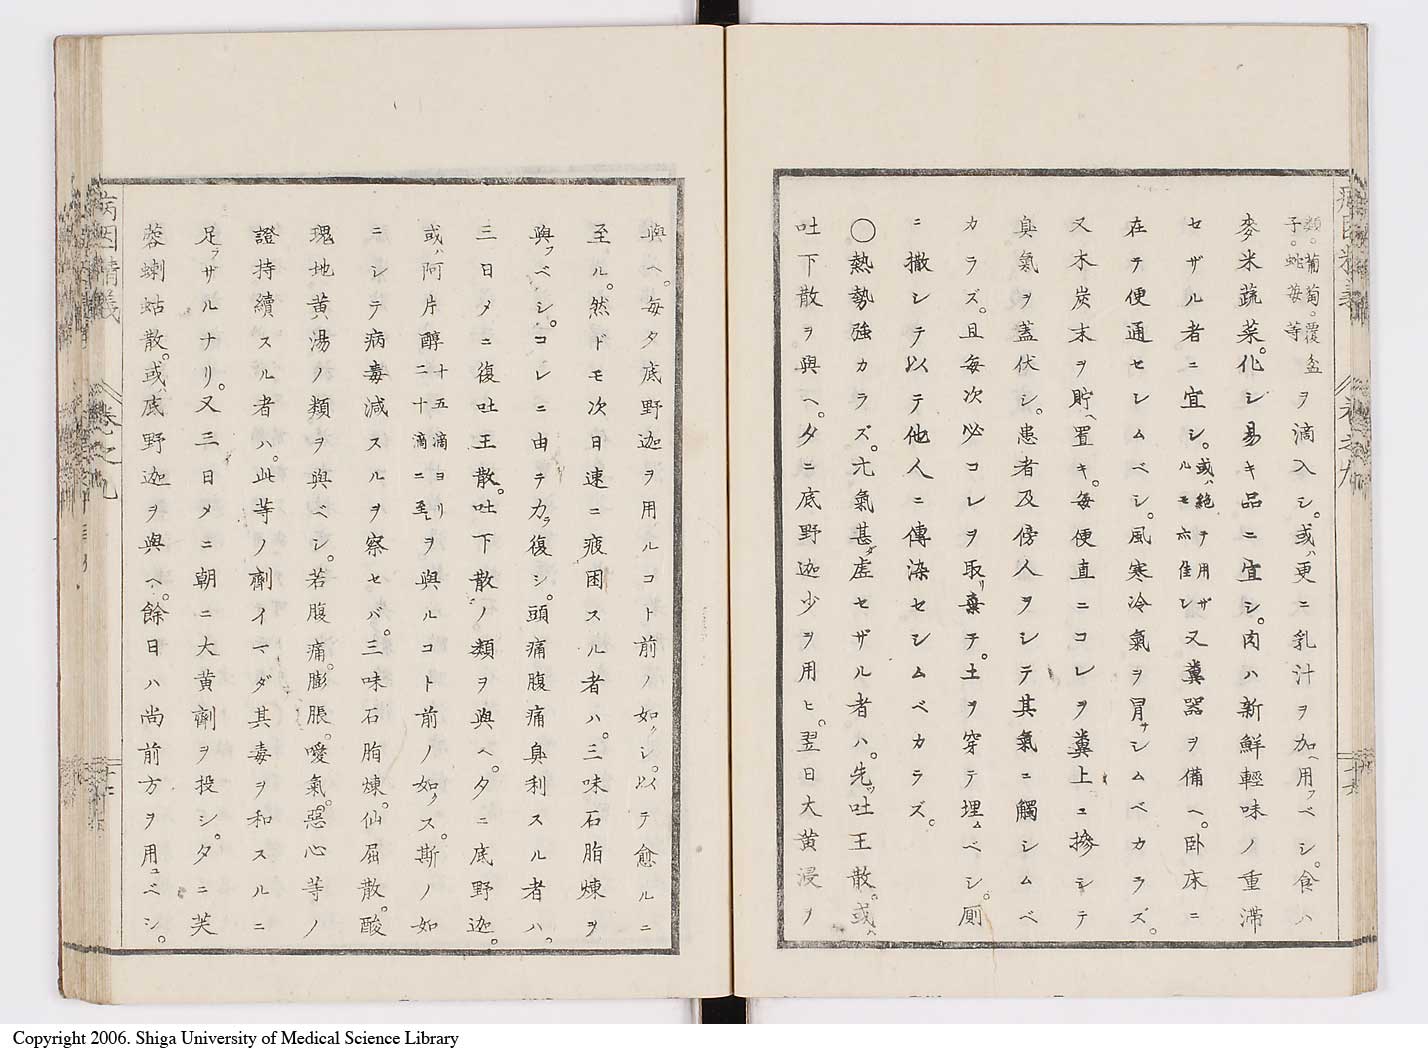 類。葡萄。覆盆
子。蛇苺等
ヲ滴入シ。或ハ更ニ乳汁ヲ加ヘ用フベシ。食ハ
麥米蔬菜。化シ易キ品ニ宜シ。肉ハ新鮮輕味ノ重滯
セザル者ニ宜シ。或ハ絶テ用ザルモ亦佳シ又糞器ヲ備ヘ。臥床ニ
在テ便通セシムベシ。風寒冷氣ヲ冐サシムベカラズ。
又木炭末ヲ貯ヘ置キ。每便直ニコレヲ糞上ニ摻シテ
臭氣ヲ蓋伏シ。患者及傍人ヲシテ其氣ニ觸シムベ
カラズ。且每次必コレヲ取リ棄テ。土ヲ穿テ埋ムベシ。厠
ニ撒シテ以テ他人ニ傳染セシムベカラズ。
〇熱勢強カラズ。元氣甚ダ虛セザル者ハ。先ヅ吐王散。或ハ
吐下散ヲ與ヘ。夕ニ底野迦少ヲ用ヒ。翌日大黄浸ヲ
與ヘ。每夕底野迦ヲ用ルコト前ノ如クシ。以テ愈ルニ
至ル。然ドモ次日速ニ疲困スル者ハ。三味石脂煉ヲ
與フベシ。コレニ由テ力ヲ復シ。頭痛腹痛臭利スル者ハ。
三日メニ復吐王散。吐下散ノ類ヲ與ヘ。夕ニ底野迦。
或ハ阿片醇十五滴ヨリ二十滴ニ至ヲ與ルコト前ノ如クス。斯ノ如
ニシテ病毒減スルヲ察セバ。三味石脂煉。仙屈散。酸
瑰地黄湯ノ類ヲ與ベシ。若腹痛。膨脹。噯氣。惡心等ノ
證持續スル者ハ。此等ノ劑イマダ其毒ヲ和スルニ
足ラザルナリ。又三日メニ朝ニ大黄劑ヲ投シ。夕ニ芙
蓉蝲蛄散。或ハ底野迦ヲ與ヘ。餘日ハ尚前方ヲ用ユベシ。
病因精義
卷之九
Copyright 2006. Shiga University of Medical Science Library